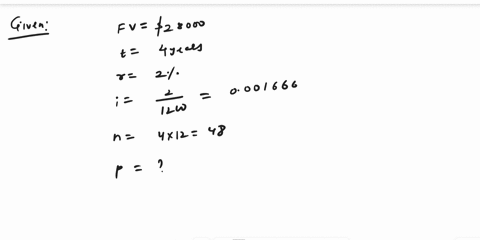 Given:
FV = $28000
t = 4 years
r = 2%.
i = 2/1200 = 0.001666
n = 4x12 = 48
p = ?